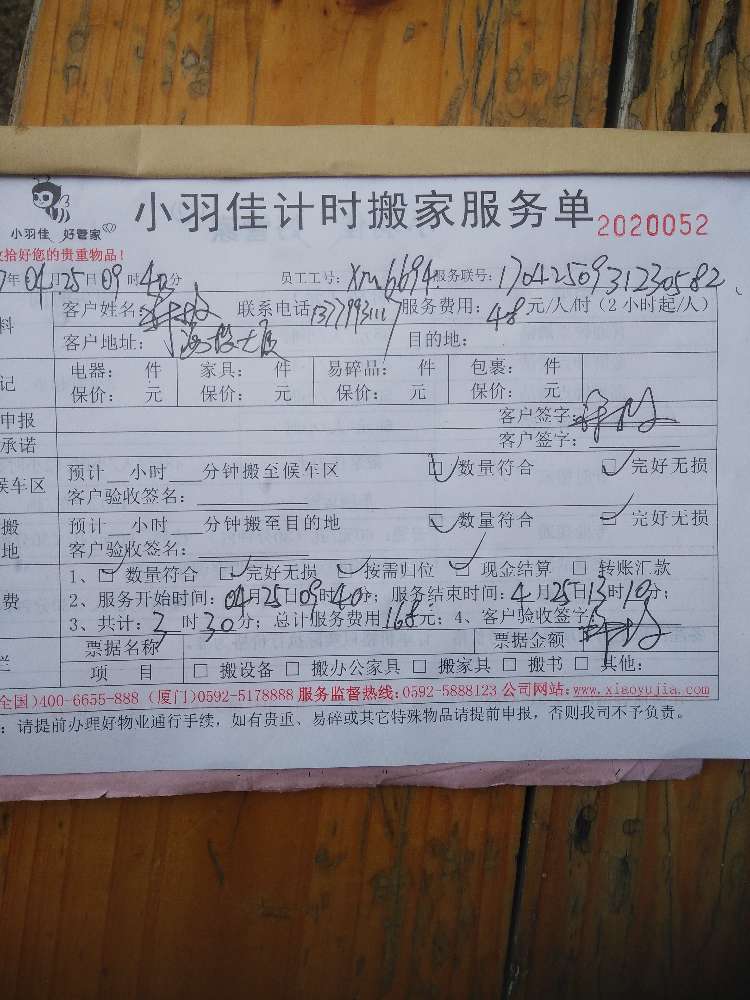 小羽佳 好管家
小羽佳计时搬家服务单 2020052
收拾好您的贵重物品！
7年04月25日09时40分 员工工号：xm6694 服务联号：1704250931230582
料 客户姓名： 联系电话 服务费用：48元/人/时（2小时起/人）
客户地址： 目的地：
记 电器： 件 家具： 件 易碎品： 件 包裹： 件
保价： 元 保价： 元 保价： 元 保价： 元
申报 客户签字：
承诺 客户签字：
候车区 预计 小时 分钟搬至候车区 □数量符合 □完好无损
客户验收签名：
搬 预计 小时 分钟搬至目的地 □数量符合 □完好无损
地 客户验收签名：
1、□数量符合 □完好无损 □按需归位 □现金结算 □转账汇款
费 2、服务开始时间：04月25日09时40分；服务结束时间：4月25日13时10分；
3、共计：3时30分；总计服务费用168元；4、客户验收签字
栏 票据名称 票据金额
项 目 □搬设备 □搬办公家具 □搬家具 □搬书 □其他：
全国)400-6655-888（厦门)0592-5178888 服务监督热线:0592-5888123 公司网站:www.xiaoyujia.com
：请提前办理好物业通行手续，如有贵重、易碎或其它特殊物品请提前申报，否则我司不予负责。